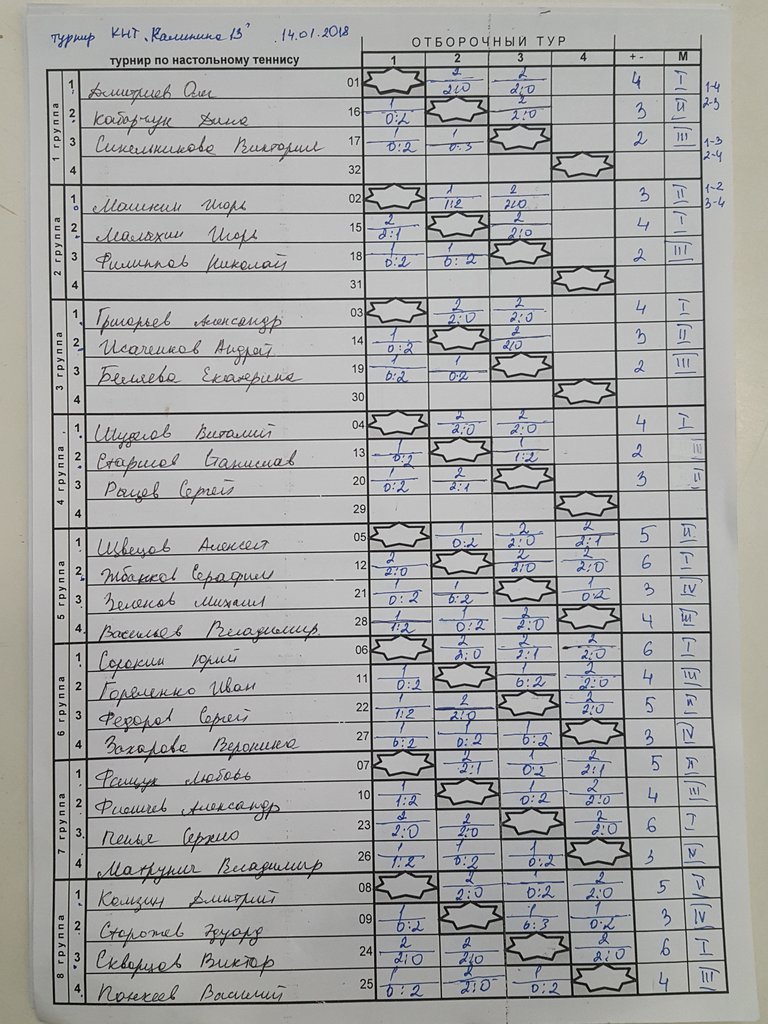 турнир КНТ "Калинина 13" 14.01.2018
ОТБОРОЧНЫЙ ТУР
турнир по настольному теннису 1 2 3 4 + - М
1 группа
1 Дмитриев Олег 01 2 2:0 2 2:0 4 I 1-4
2 Кабарчук Дина 16 1 0:2 2 2:0 3 II 2-3
3 Синельникова Виктория 17 1 0:2 1 0:3 2 III 1-3
4 32 2-4
2 группа
1 Машкин Игорь 02 1 1:2 2 2:0 3 II 1-2
2 Малыхин Игорь 15 2 2:1 2 2:0 4 I 3-4
3 Филиппов Николай 18 1 0:2 1 0:2 2 III
4 31
3 группа
1 Григорьев Александр 03 2 2:0 2 2:0 4 I
2 Исаченков Андрей 14 1 0:2 2 2:0 3 II
3 Беляева Екатерина 19 1 0:2 1 0:2 2 III
4 30
4 группа
1 Виталий 04 2 2:0 2 2:0 4 I
2 Станислав 13 1 0:2 1 1:2 2 III
3 Рацев Сергей 20 1 0:2 2 2:1 3 II
4 29
5 группа
1 Швецов Алексей 05 1 0:2 2 2:0 2 2:1 5 II
2 Жбанков Серафим 12 2 2:0 2 2:0 2 2:0 6 I
3 Зеленов Михаил 21 1 0:2 1 0:2 1 0:2 3 IV
4 Васильев Владимир 28 1 1:2 1 0:2 2 2:0 4 III
6 группа
1 Сорокин Юрий 06 2 2:0 2 2:1 2 2:0 6 I
2 Гореленко Иван 11 1 0:2 1 0:2 2 2:0 4 III
3 Федоров Сергей 22 1 1:2 2 2:0 2 2:0 5 II
4 Захарова Вероника 27 1 0:2 1 0:2 1 0:2 3 IV
7 группа
1 Фащук Любовь 07 2 2:1 1 0:2 2 2:1 5 II
2 Александр 10 1 1:2 1 0:2 2 2:0 4 III
3 Пенья Серхио 23 2 2:0 2 2:0 2 2:0 6 I
4 Владимир 26 1 1:2 1 0:2 1 0:2 3 IV
8 группа
1 Комзин Дмитрий 08 2 2:0 1 0:2 2 2:0 5 II
2 Сторожев Эдуард 09 1 0:2 1 0:3 1 0:2 3 IV
3 Скворцов Виктор 24 2 2:0 2 2:0 2 2:0 6 I
4 Панкеев Василий 25 1 0:2 2 2:0 1 0:2 4 III